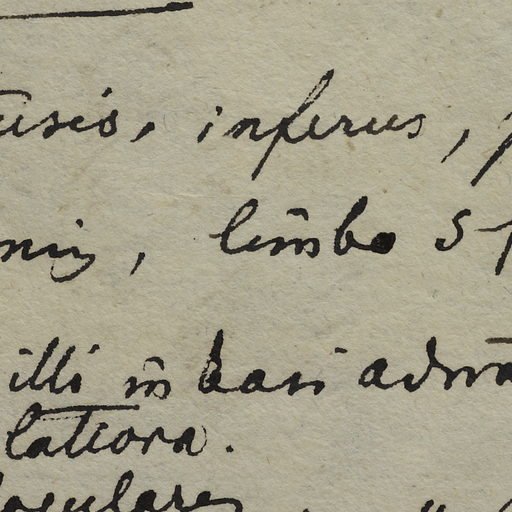 usis, inferus, p
nis, limbo 5-f
illi in basi adna
latiora.
logulares